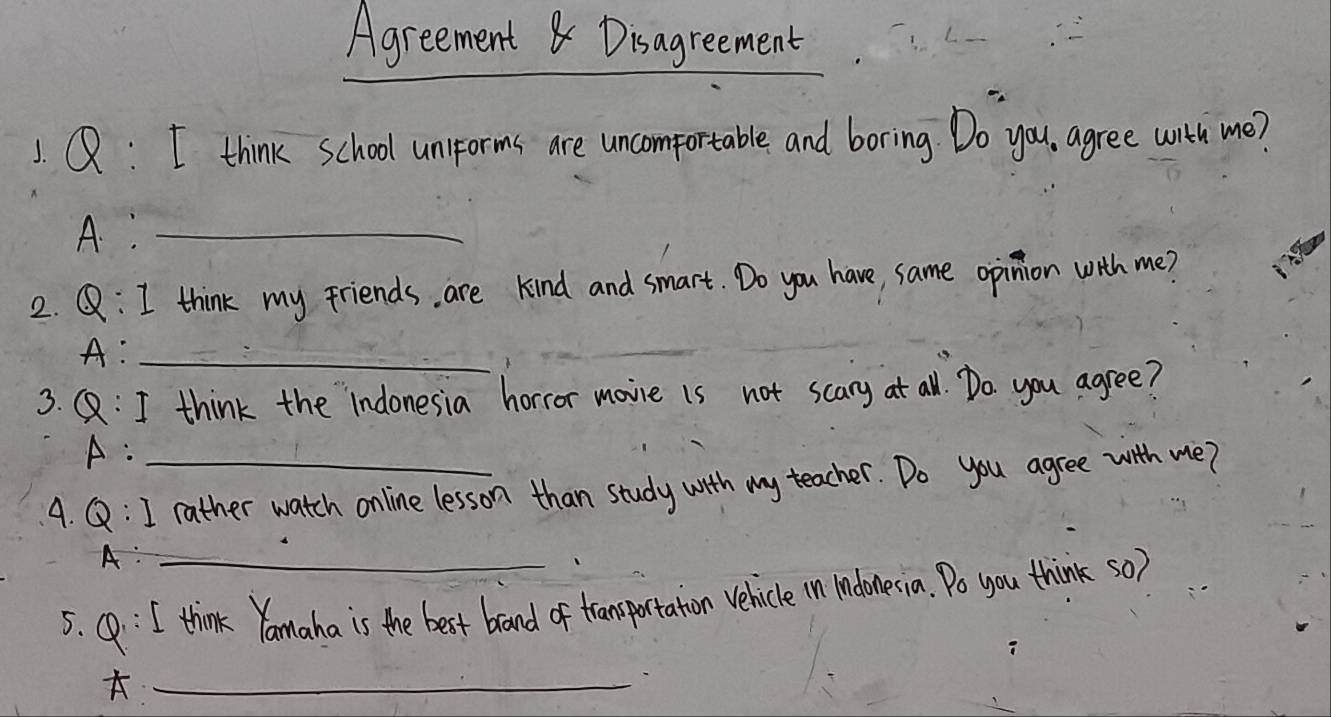 Agreement & Disagreement
1. Q : I think school uniforms are uncomfortable and boring. Do you agree with me?
A :
2. Q : I think my friends are kind and smart. Do you have same opinion with me?
A :
3. Q : I think the Indonesia horror movie is not scary at all. Do you agree?
A :
4. Q : I rather watch online lesson than study with my teacher. Do you agree with me?
A :
5. Q : I think Yamaha is the best brand of transportation vehicle in Indonesia. Do you think so?
A :